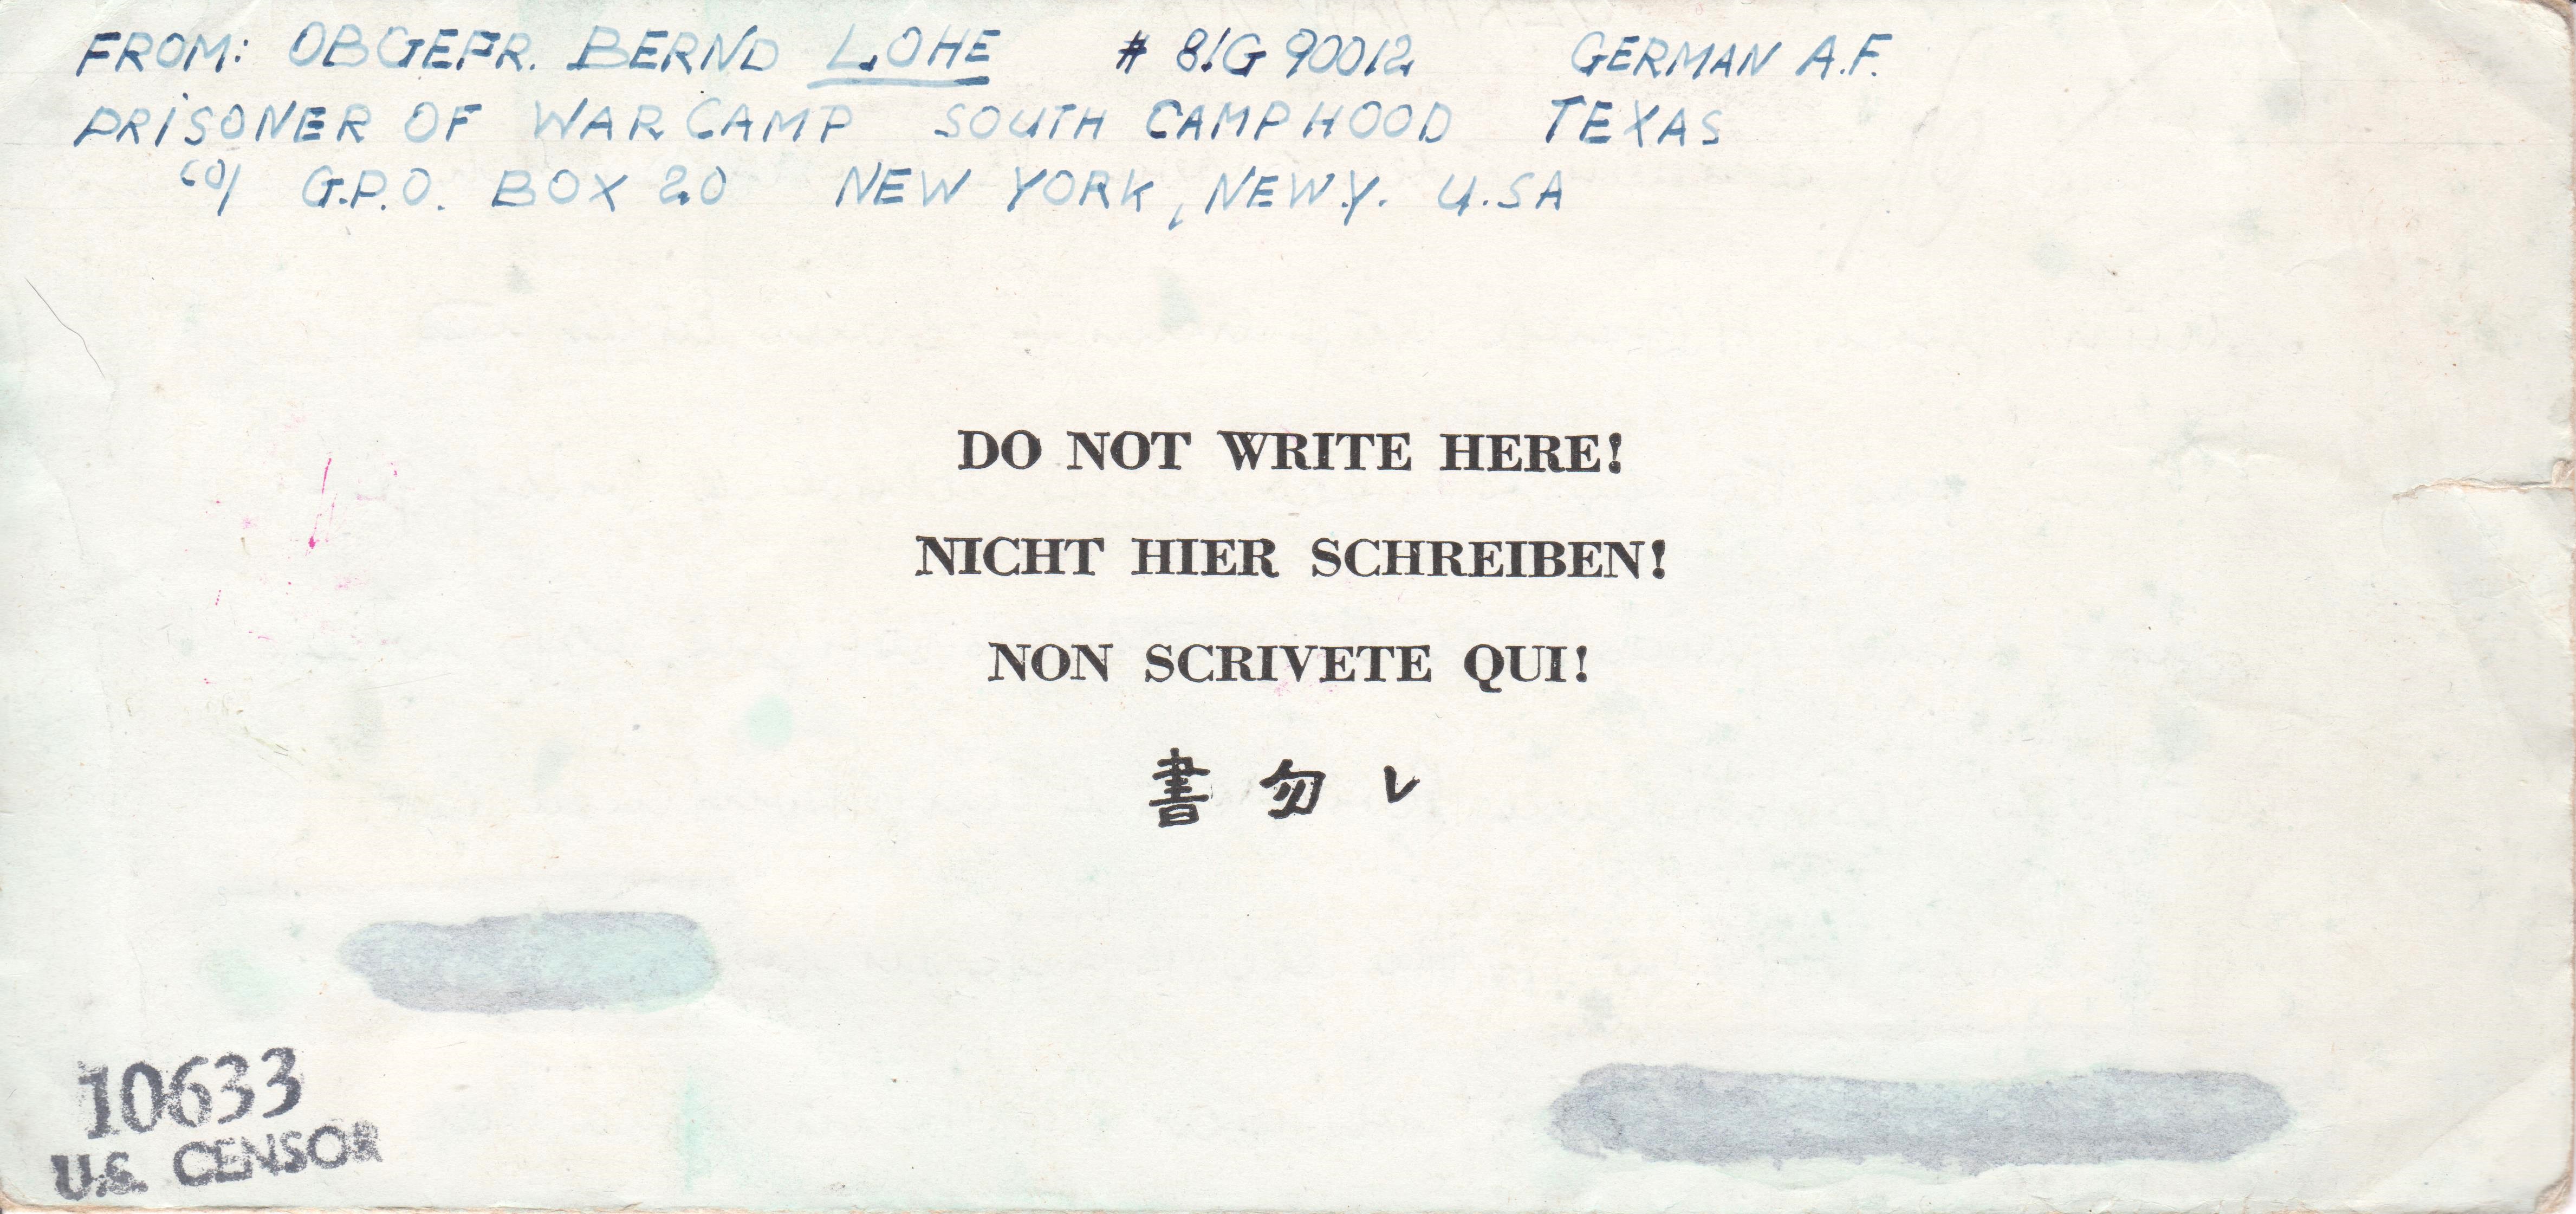 FROM: OBGEFR. BERND LOHE # 81G 90012 GERMAN A.F.
PRISONER OF WAR CAMP SOUTH CAMP HOOD TEXAS
c/o G.P.O. BOX 20 NEW YORK, NEW.Y. U.SA
DO NOT WRITE HERE!
NICHT HIER SCHREIBEN!
NON SCRIVETE QUI!
書勿レ
10633
U.S. CENSOR